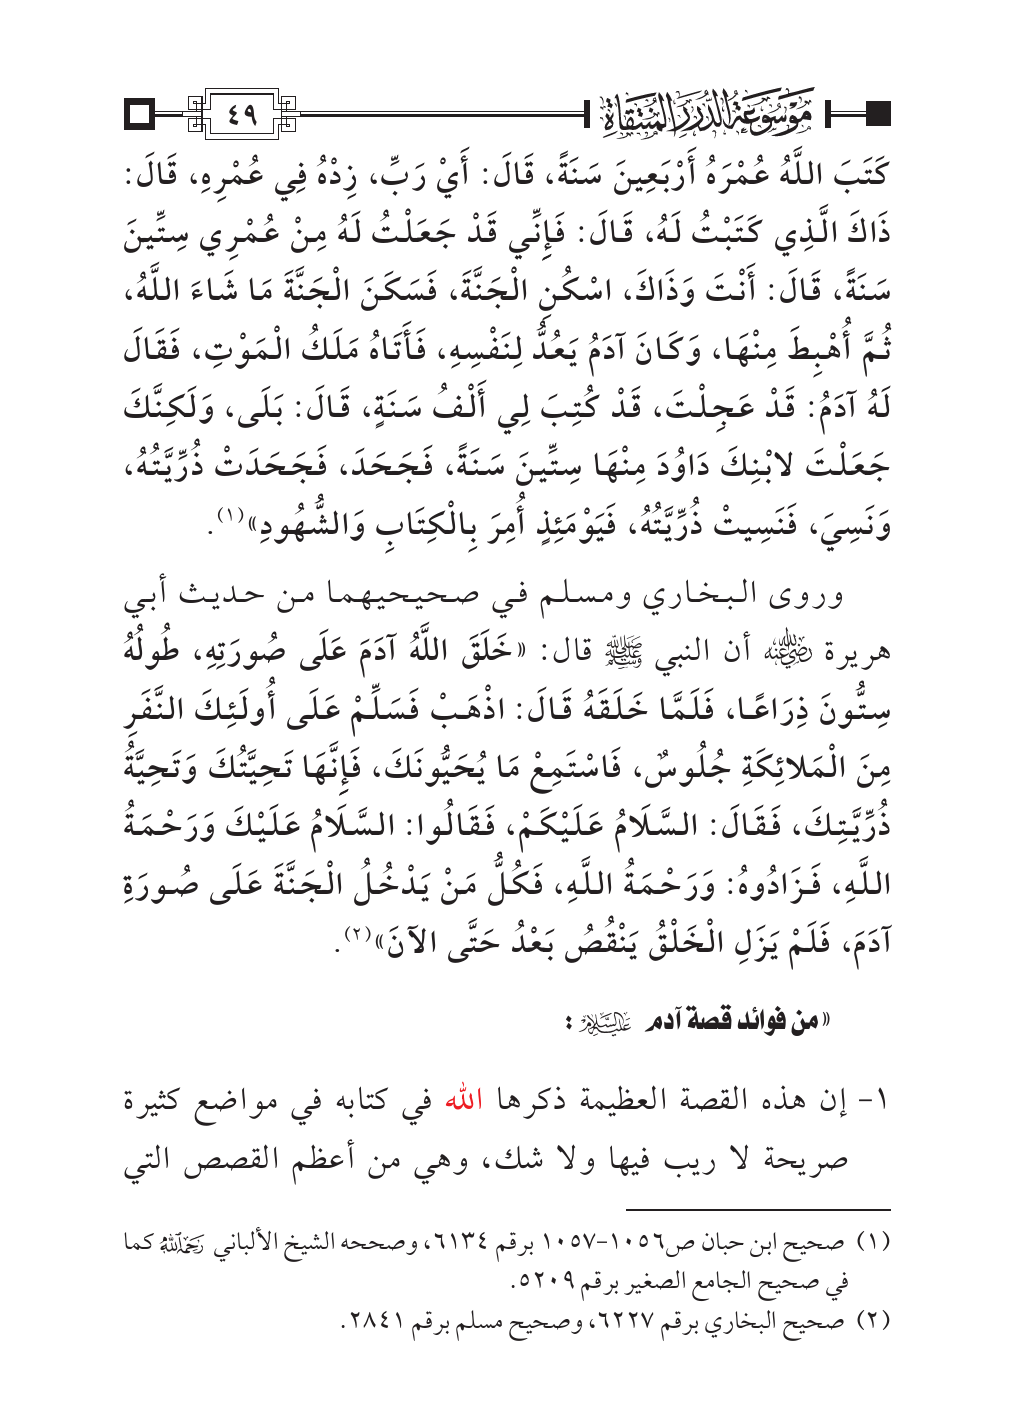 موسوعة الدرر المنتقاة ٤٩
كَتَبَ اللَّهُ عُمْرَهُ أَرْبَعِينَ سَنَةً، قَالَ: أَيْ رَبِّ، زِدْهُ فِي عُمْرِهِ، قَالَ:
ذَاكَ الَّذِي كَتَبْتُ لَهُ، قَالَ: فَإِنِّي قَدْ جَعَلْتُ لَهُ مِنْ عُمْرِي سِتِّينَ
سَنَةً، قَالَ: أَنْتَ وَذَاكَ، اسْكُنِ الْجَنَّةَ، فَسَكَنَ الْجَنَّةَ مَا شَاءَ اللَّهُ،
ثُمَّ أُهْبِطَ مِنْهَا، وَكَانَ آدَمُ يَعُدُّ لِنَفْسِهِ، فَأَتَاهُ مَلَكُ الْمَوْتِ، فَقَالَ
لَهُ آدَمُ: قَدْ عَجِلْتَ، قَدْ كُتِبَ لِي أَلْفُ سَنَةٍ، قَالَ: بَلَى، وَلَكِنَّكَ
جَعَلْتَ لابْنِكَ دَاوُدَ مِنْهَا سِتِّينَ سَنَةً، فَجَحَدَ، فَجَحَدَتْ ذُرِّيَّتُهُ،
وَنَسِيَ، فَنَسِيتْ ذُرِّيَّتُهُ، فَيَوْمَئِذٍ أُمِرَ بِالْكِتَابِ وَالشُّهُودِ»(١).
وروى البخاري ومسلم في صحيحيهما من حديث أبي
هريرة رضي الله عنه أن النبي ﷺ قال: «خَلَقَ اللَّهُ آدَمَ عَلَى صُورَتِهِ، طُولُهُ
سِتُّونَ ذِرَاعًا، فَلَمَّا خَلَقَهُ قَالَ: اذْهَبْ فَسَلِّمْ عَلَى أُولَئِكَ النَّفَرِ
مِنَ الْمَلائِكَةِ جُلُوسٌ، فَاسْتَمِعْ مَا يُحَيُّونَكَ، فَإِنَّهَا تَحِيَّتُكَ وَتَحِيَّةُ
ذُرِّيَّتِكَ، فَقَالَ: السَّلَامُ عَلَيْكَمْ، فَقَالُوا: السَّلَامُ عَلَيْكَ وَرَحْمَةُ
اللَّهِ، فَزَادُوهُ: وَرَحْمَةُ اللَّهِ، فَكُلُّ مَنْ يَدْخُلُ الْجَنَّةَ عَلَى صُورَةِ
آدَمَ، فَلَمْ يَزَلِ الْخَلْقُ يَنْقُصُ بَعْدُ حَتَّى الآنَ»(٢).
«من فوائد قصة آدم عليه السلام:
١- إن هذه القصة العظيمة ذكرها الله في كتابه في مواضع كثيرة
صريحة لا ريب فيها ولا شك، وهي من أعظم القصص التي
(١) صحيح ابن حبان ص١٠٥٦-١٠٥٧ برقم ٦١٣٤، وصححه الشيخ الألباني رحمه الله كما
في صحيح الجامع الصغير برقم ٥٢٠٩.
(٢) صحيح البخاري برقم ٦٢٢٧، وصحيح مسلم برقم ٢٨٤١.